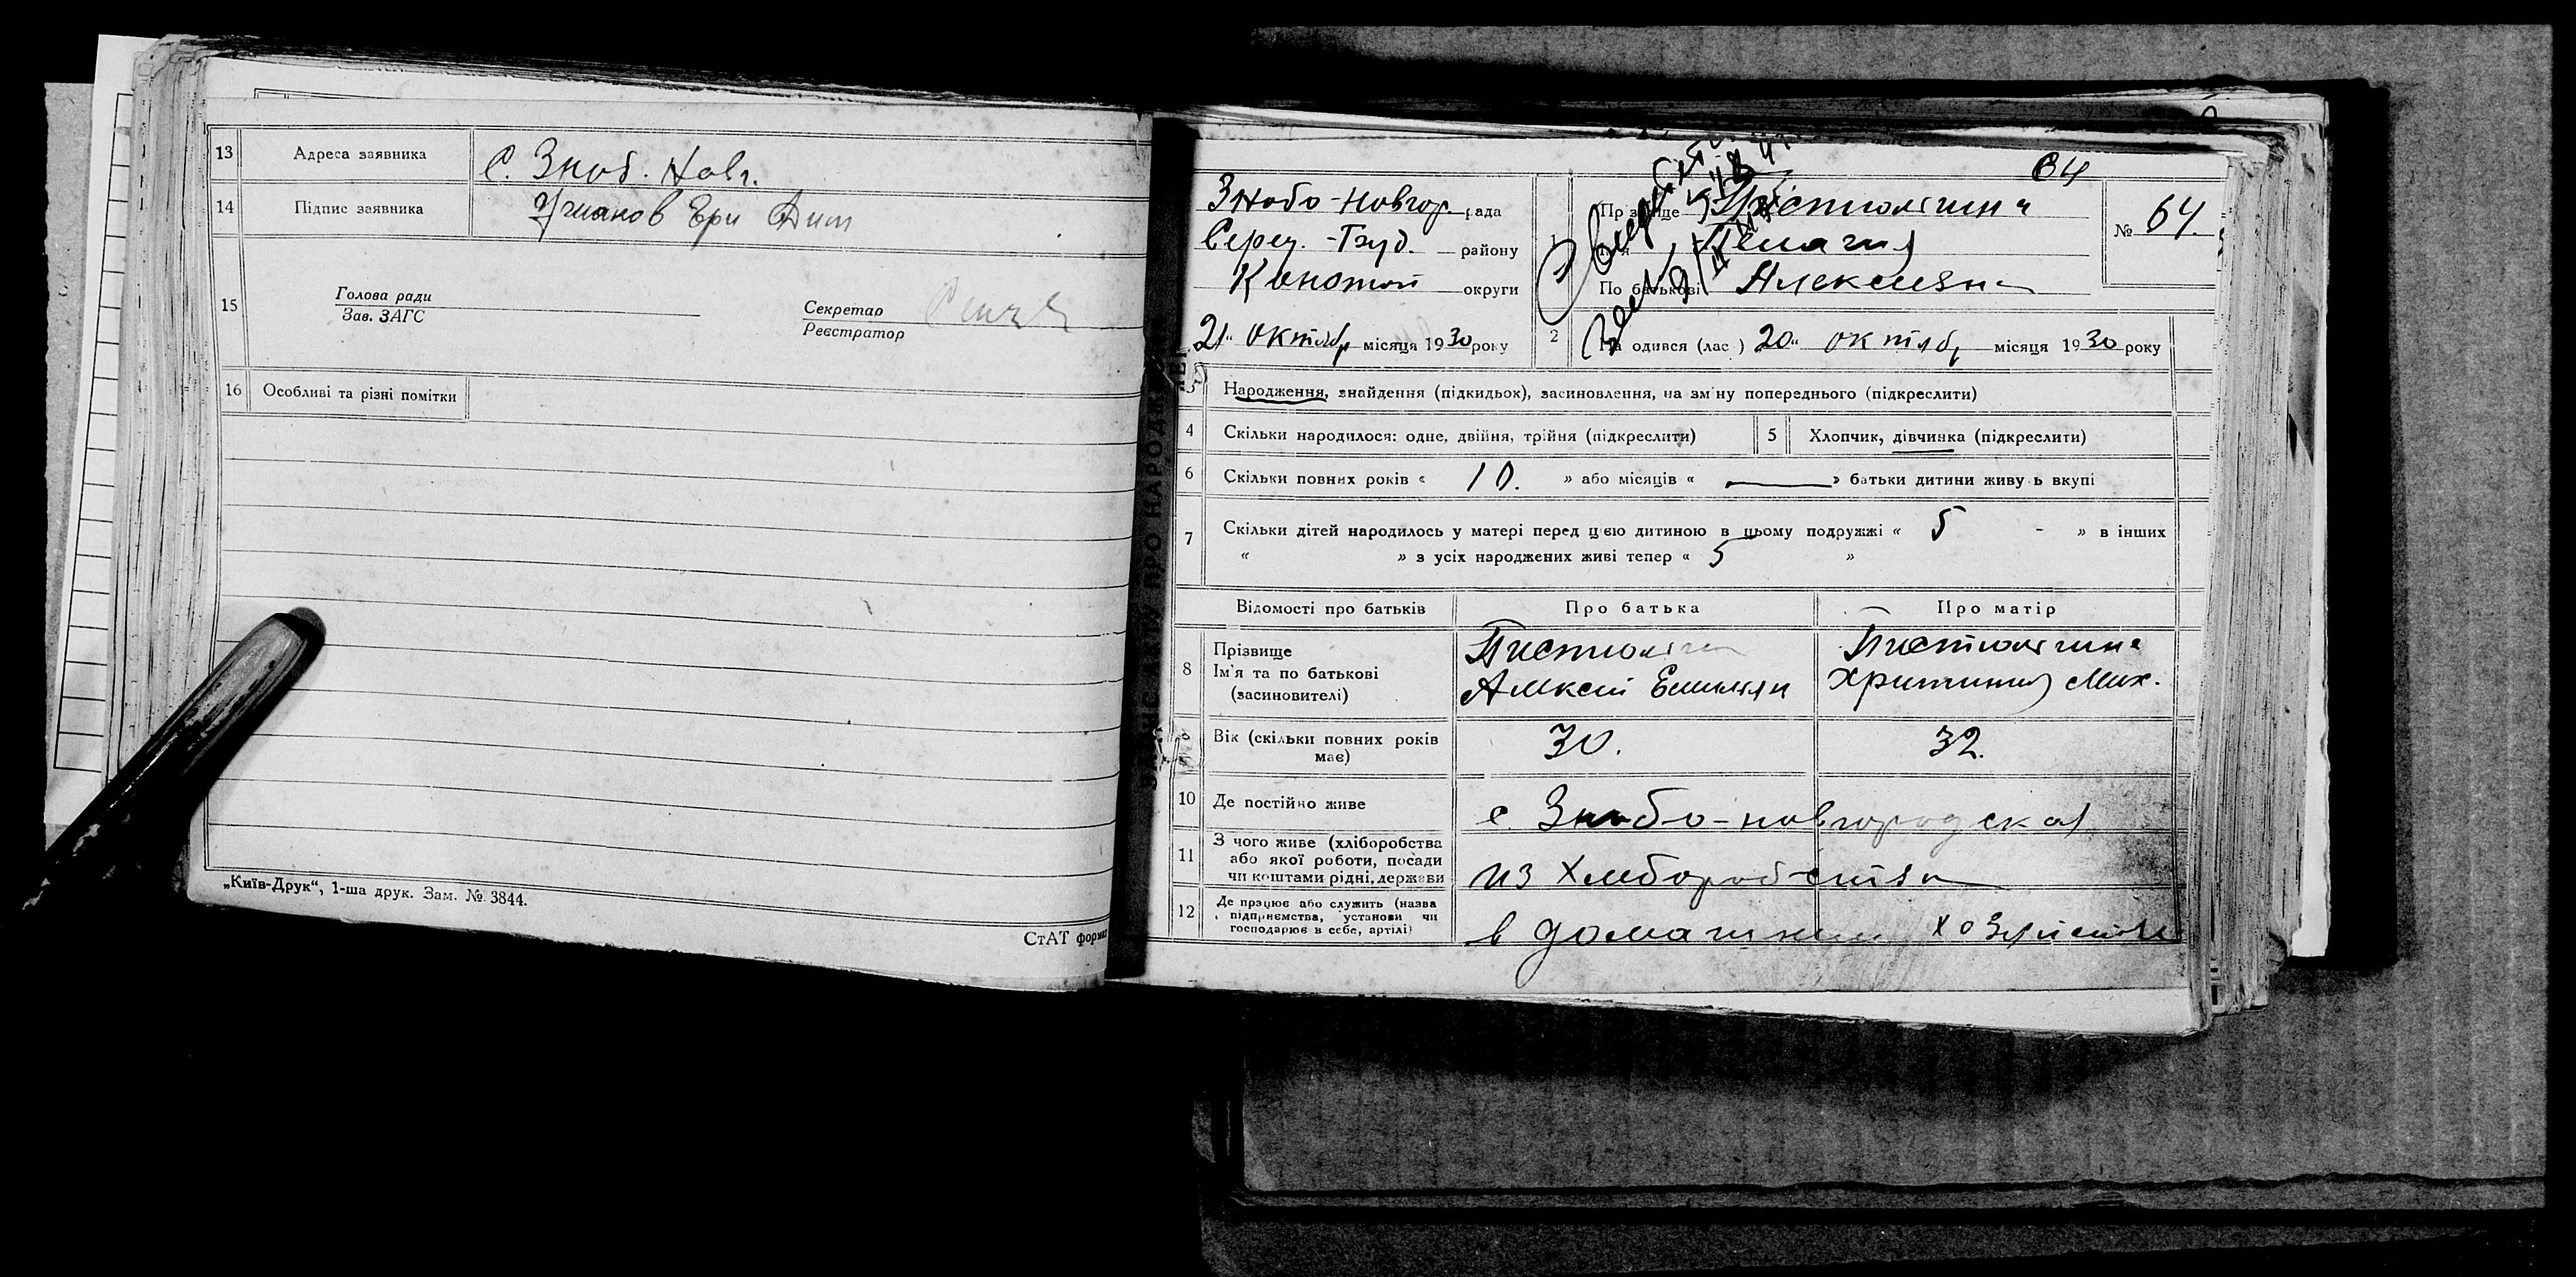 13 Адреса заявника С. Зноб. Новг.
14 Підпис заявника
15 Голова ради
Зав. ЗАГС
Секретар
Реєстратор
16 Особливі та різні помітки
„Київ-Друк“, 1-ша друк. Зам. № 3844.
СтАТ формат
64
Знобо-Новгор. рада
Серед.-Буд. району
Конотоп округи
21 октябр місяця 1930 року
1 Прізвище
Ім'я Пелагия
По батькові Алексеевна
№ 64.
2 Народився (лась) 20 октябр місяця 1930 року
3 Народження, знайдення (підкидьок), засиновлення, на зміну попереднього (підкреслити)
4 Скільки народилося: одне, двійня, трійня (підкреслити)
5 Хлопчик, дівчинка (підкреслити)
6 Скільки повних років « 10. » або місяців « — » батьки дитини живуть вкупі
7 Скільки дітей народилось у матері перед цією дитиною в цьому подружжі « 5 - » в інших
« » з усіх народжених живі тепер « 5 »
Відомості про батьків Про батька Про матір
8 Прізвище
Ім'я та по батькові
(засиновителі)
Алексей Емельян
Мих.
9 Вік (скільки повних років має) 30. 32.
10 Де постійно живе с. Знобо-новгородская
11 З чого живе (хліборобства
або якої роботи, посади
чи коштами рідні, держави
из хлеборобства
12 Де працює або служить (назва
підприємства, установи чи
господарює в себе, артілі)
в домашнем хозяйстве